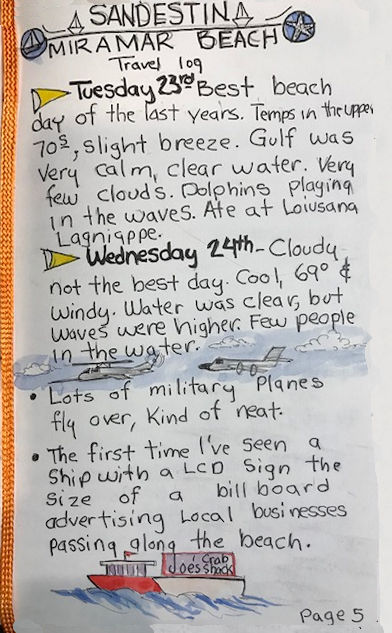 SANDESTIN
MIRAMAR BEACH
Travel log
Tuesday 23rd Best beach
day of the last years. Temps in the upper
70s, slight breeze. Gulf was
very calm, clear water. Very
few clouds. Dolphins playing
in the waves. Ate at Loiusana
Lagniappe.
Wednesday 24th - Cloudy
not the best day. Cool, 69° &
windy. Water was clear, but
waves were higher. Few people
in the water.
• Lots of military Planes
fly over, Kind of neat.
• The first time I've seen a
Ship with a LCD Sign the
Size of a bill board
advertising Local businesses
passing along the beach.
Joes Crab
Shack
Page 5